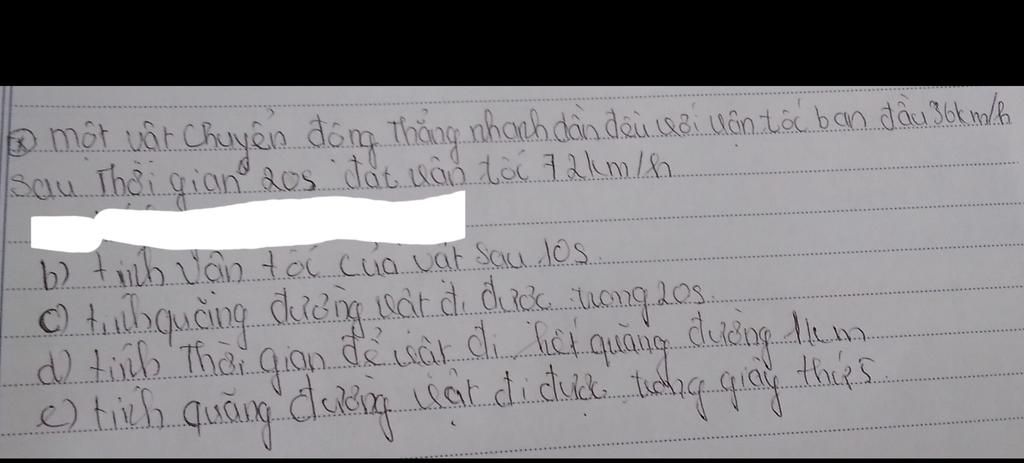 một vật chuyển động thẳng nhanh dần đều với vận tốc ban đầu 36km/h
sau thời gian 20s đạt vận tốc 72km/h
b) tính vận tốc của vật sau 10s.
c) tính quãng đường vật đi được trong 20s.
d) tính thời gian để vật đi hết quãng đường 1km
e) tính quãng đường vật đi được trong giây thứ 5.